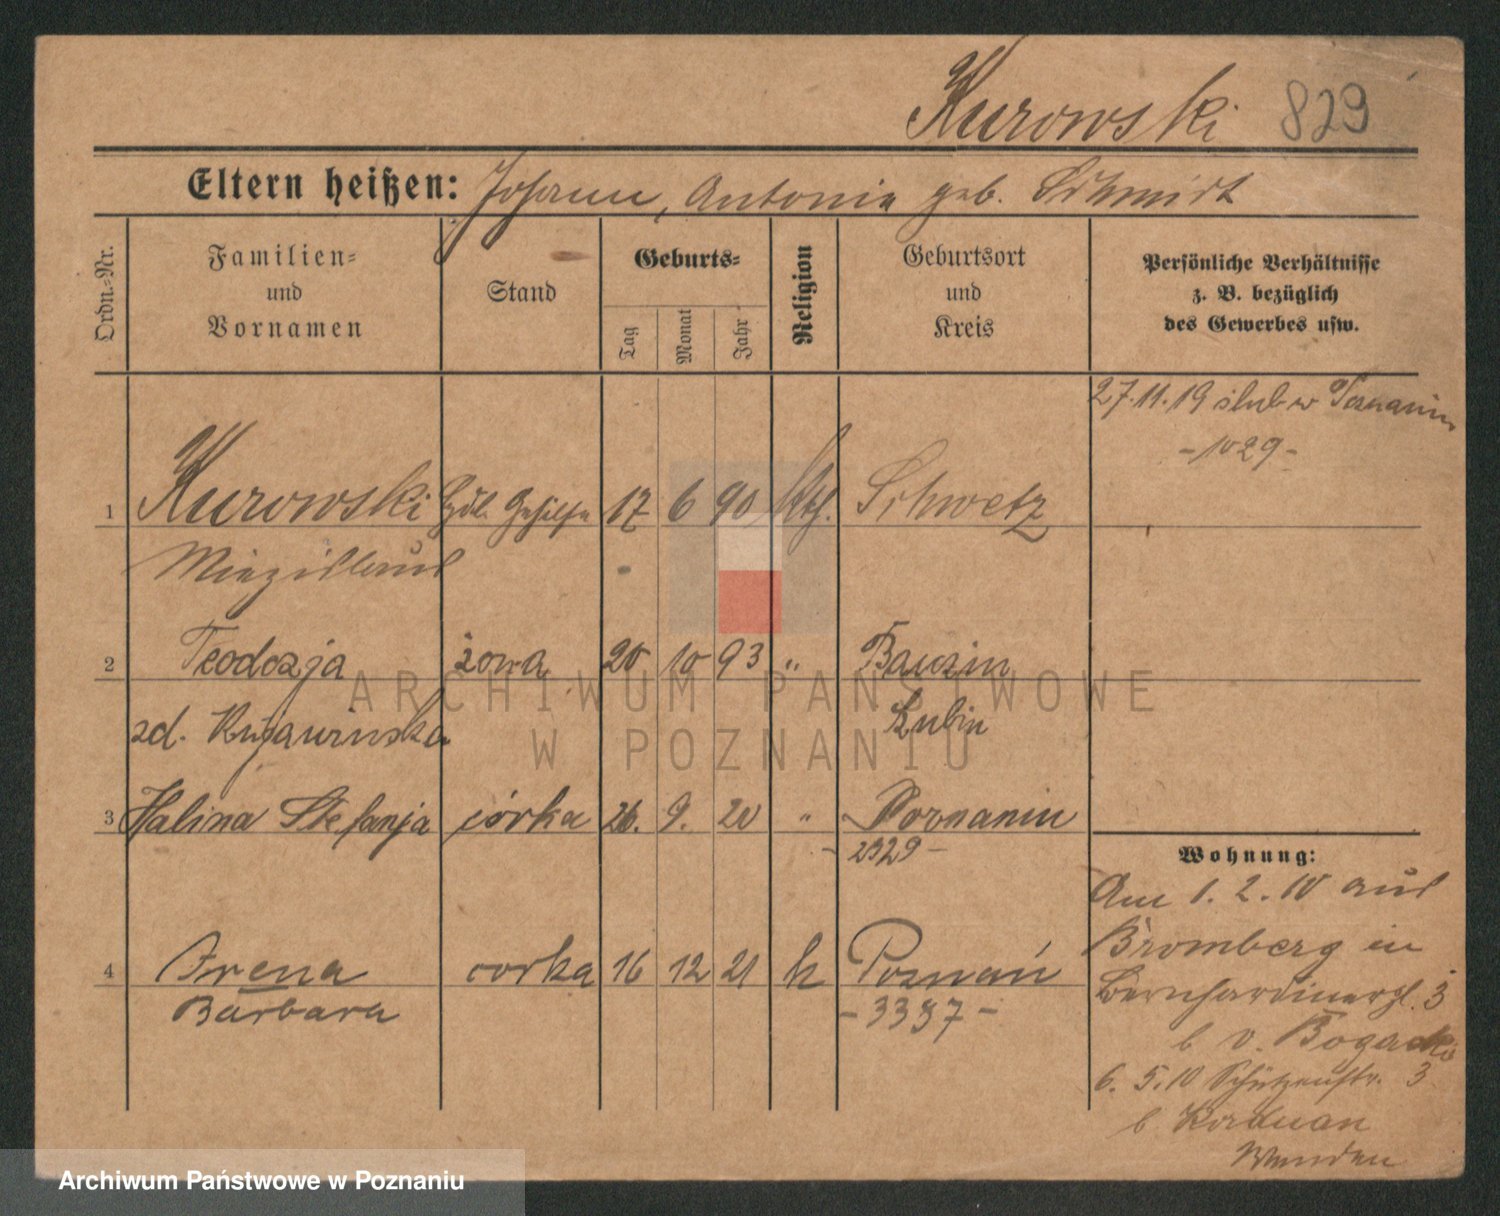 Kurowski 829
Eltern heißen: Johann, Antonie geb. Schmidt
Ordn.-Nr.
Familien-
und
Vornamen
Stand
Geburts-
Tag
Monat
Jahr
Religion
Geburtsort
und
Kreis
Persönliche Verhältnisse
z. B. bezüglich
des Gewerbes usw.
27.11.19 ślub w Poznaniu
-1029-
1 Kurowski Hdl. Gehilfe 17 6 90 kth. Schwetz
Miezislaus
2 Teodozja żona 20 10 93 "
Lubin
zd. Kujawinska
3 Halina Stefanja córka 26. 9. 20 " Poznaniu
- 2329 -
4 Irena corka 16 12 21 k Poznań
Barbara
- 3397 -
Wohnung:
Am 1. 2. 10 aus
Bromberg in
Bernhardinerpl. 3
b v. Bogacki
6. 5. 10 Schützenstr. 3
b Korduan
Wenden
ARCHIWUM PAŃSTWOWE
W POZNANIU
Archiwum Państwowe w Poznaniu